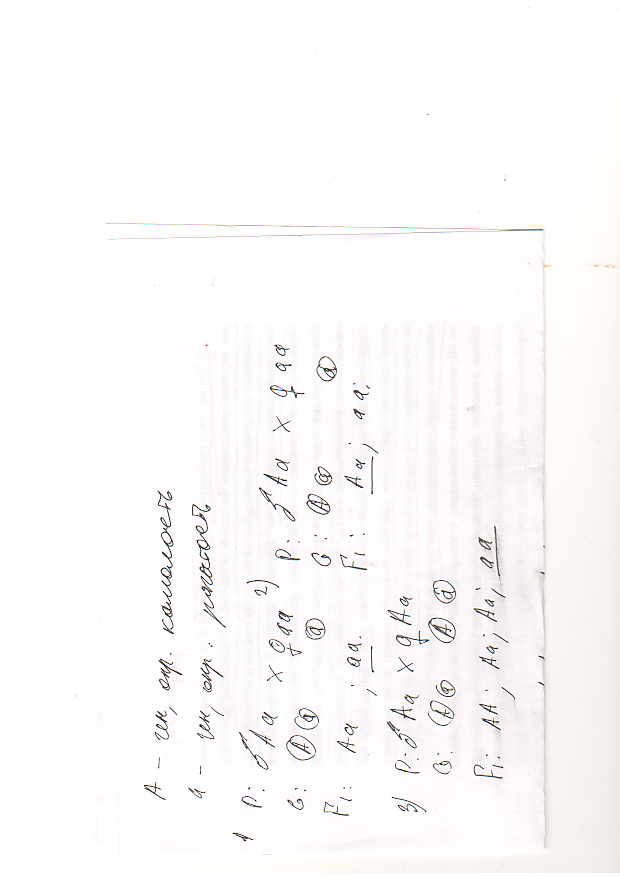 А – ген, опр. комолость
а – ген, опр. рогатость
1) P: ♂ Aa × ♀ aa
G: (A) (a) (a)
F1: Aa ; aa.
2) P: ♂ Aa × ♀ aa
G: (A) (a) (a)
F1: Aa ; aa.
3) P: ♂ Aa × ♀ Aa
G: (A) (a) (A) (a)
F1: AA; Aa; Aa; aa